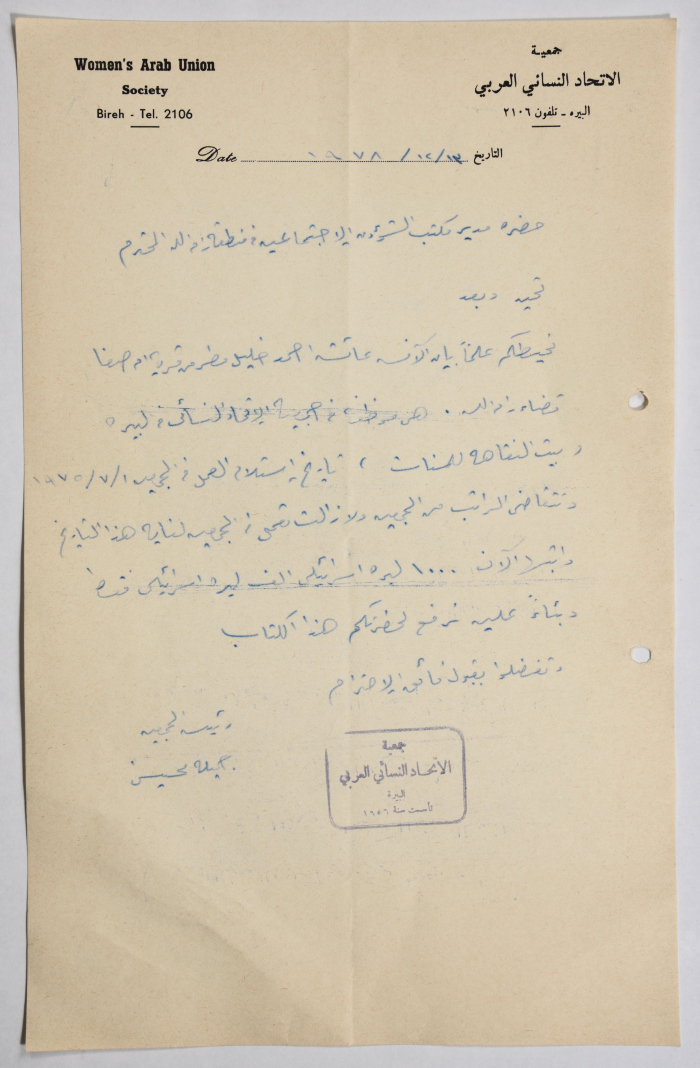 Women's Arab Union
Society
Bireh - Tel. 2106
جمعية
الاتحاد النسائي العربي
البيره - تلفون ٢١٠٦
Date ١٩٧٨ / ١٢ / ١٣ التاريخ
حضرة مدير مكتب الشؤون الاجتماعيه في منطقة رام الله المحترم
تحيه وبعد
نحيطكم علماً بأن الآنسه عائشه احمد خليل مطر من قرية ام صفا
قضاء رام الله . هي موظفة في جمعية الاتحاد النسائي في البيره
وبيت النقاهه للمسنات ، تاريخ استلام العمل في الجمعيه ١/٧/١٩٧٥
وتتقاضى الراتب من الجمعيه ولا زالت تعمل في الجمعيه لغاية هذا التاريخ
الآن ١٠٠٠ ليره اسرائيلي الف ليره اسرائيلي فقط
وبناءً عليه نرفع لحضرتكم هذا الكتاب
وتفضلوا بقبول فائق الاحترام
رئيسة الجمعيه
جمعية
الاتحاد النسائي العربي
البيرة
تأسست سنة ١٩٥٦